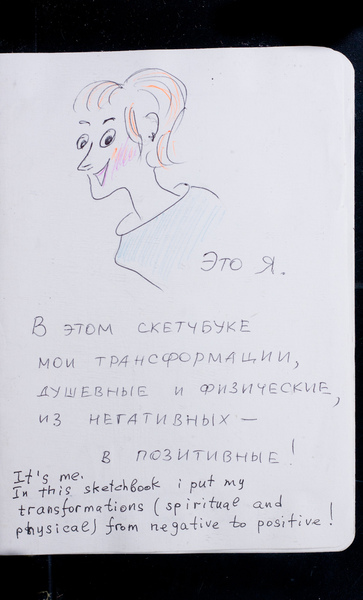 Это я.
В этом скетчбуке
мои трансформации,
душевные и физические,
из негативных —
в позитивные!
It's me.
In this sketchbook i put my
transformations (spiritual and
physical) from negative to positive!